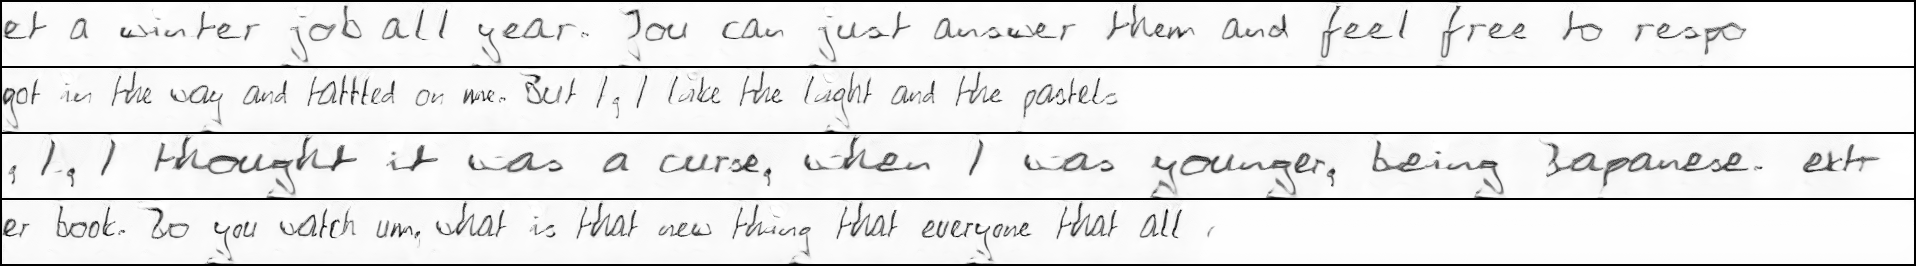 et a winter job all year. You can just answer them and feel free to respo
got in the way and tattted on me. But I, I like the light and the pastels
, I, I thought it was a curse, when I was younger, being Japanese. extr
er book. Do you watch um, what is that new thing that everyone that all ,